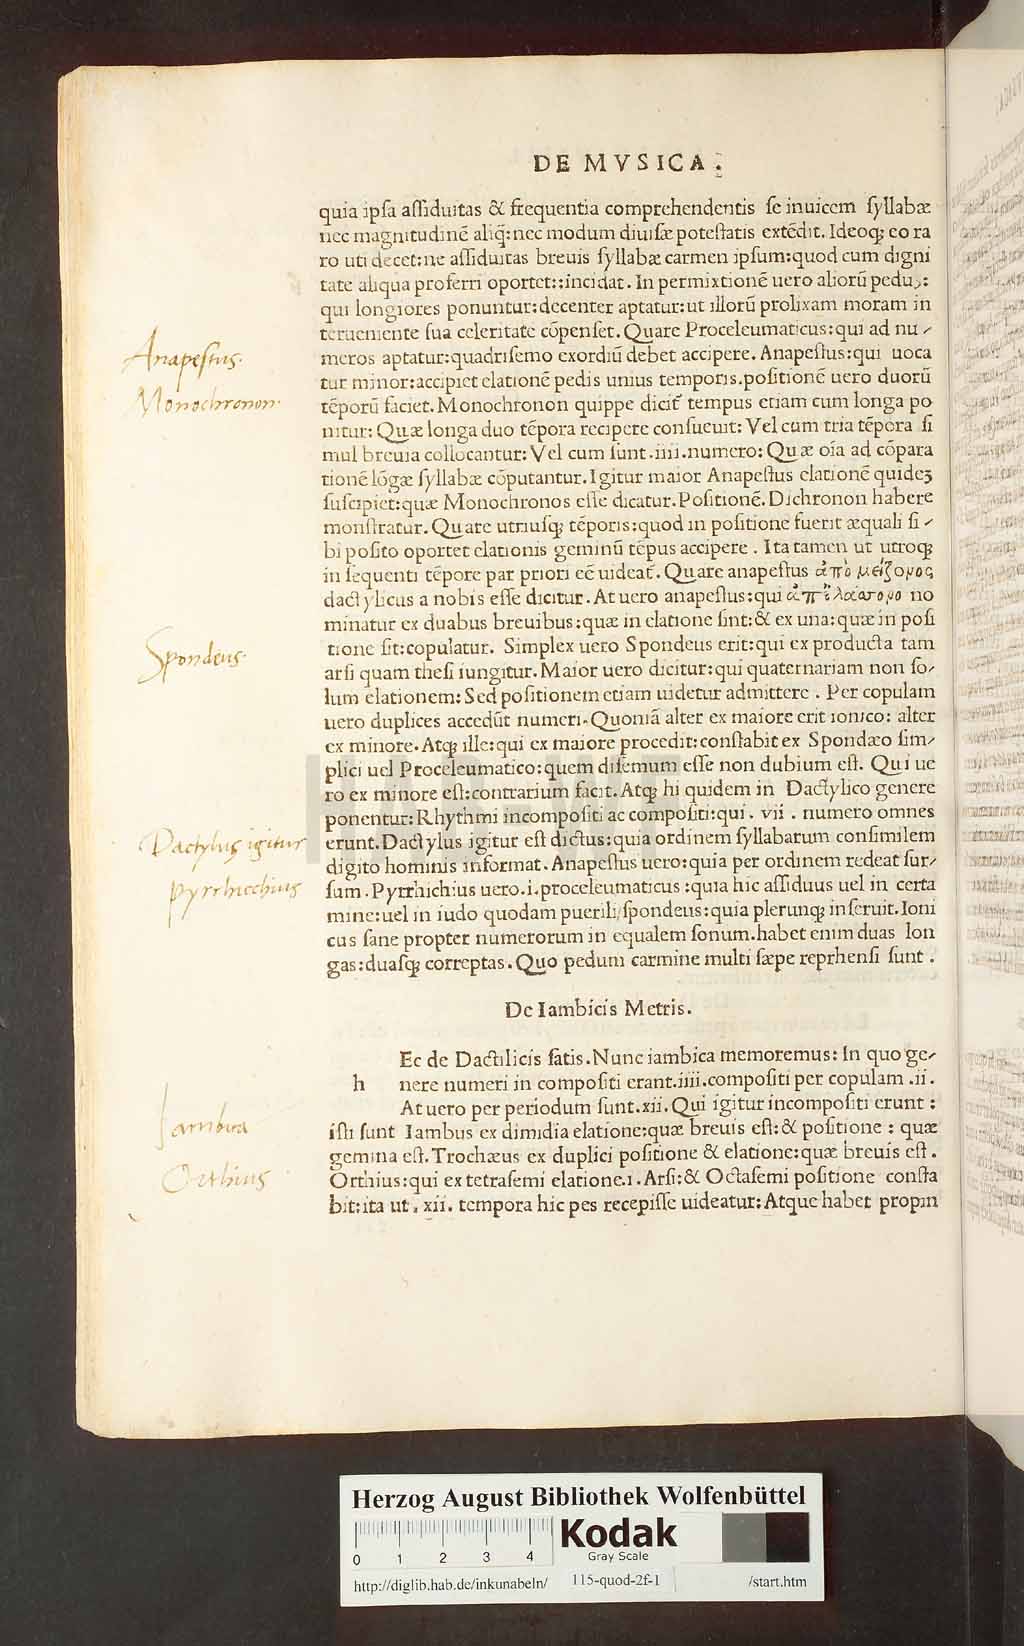 DE MVSICA.
quia ipſa aſſiduitas & frequentia comprehendentis ſe inuicem ſyllabæ
nec magnitudinē aliq̄: nec modum diuiſæ poteſtatis extēdit. Ideoq; eo ra
ro uti decet: ne aſſiduitas breuis ſyllabæ carmen ipſum: quod cum digni
tate aliqua proferri oportet:: incidat. In permixtionē uero aliorū pedu:
qui longiores ponuntur: decenter aptatur: ut illorū prolixam moram in
terueniente ſua celeritate cōpenſet. Quare Proceleumaticus: qui ad nu-
meros aptatur: quadriſemo exordiū debet accipere. Anapeſtus: qui uoca
Anapeſtus.
tur minor: accipiet elationē pedis unius temporis. poſitionē uero duorū
tēporū faciet. Monochronon quippe dicit᷑ tempus etiam cum longa po
Monochronon.
nitur: Quæ longa duo tēpora recipere conſueuit: Vel cum tria tēpora ſi
mul breuia collocantur: Vel cum ſunt .iiii. numero: Quæ oīa ad cōpara
tionē lōgæ ſyllabæ cōputantur. Igitur maior Anapeſtus elationē quideʒ
ſuſcipiet: quæ Monochronos eſſe dicatur. Poſitionē. Dichronon habere
monſtratur. Quare utriuſq; tēporis: quod in poſitione fuerit æquali ſi-
bi poſito oportet elationis geminū tēpus accipere . Ita tamen ut utroq;
in ſequenti tēpore par priori eē uideat᷑. Quare anapeſtus ἀπὸ μείζονος
dactylicus a nobis eſſe dicitur. At uero anapeſtus: qui no
minatur ex duabus breuibus: quæ in elatione ſint: & ex una: quæ in poſi
tione ſit: copulatur. Simplex uero Spondeus erit: qui ex producta tam
Spondeus.
arſi quam theſi iungitur. Maior uero dicitur: qui quaternariam non ſo-
lum elationem: Sed poſitionem etiam uidetur admittere . Per copulam
uero duplices accedūt numeri. Quoniā alter ex maiore erit ionico: alter
ex minore. Atq; ille: qui ex maiore procedit: conſtabit ex Spondæo ſim-
plici uel Proceleumatico: quem diſemum eſſe non dubium eſt. Qui ue
ro ex minore eſt: contrarium facit. Atq; hi quidem in Dactylico genere
ponentur: Rhythmi incompoſiti ac compoſiti: qui . vii . numero omnes
erunt. Dactylus igitur eſt dictus: quia ordinem ſyllabarum conſimilem
Dactylus igitur
digito hominis informat. Anapeſtus uero: quia per ordinem redeat ſur-
ſum. Pyrrhichius uero .i. proceleumaticus : quia hic aſſiduus uel in certa
pyrrhicchius
mine: uel in iudo quodam puerili/ ſpondeus: quia plerunq; inſeruit. Ioni
cus ſane propter numerorum in equalem ſonum. habet enim duas lon
gas: duaſq; correptas. Quo pedum carmine multi ſæpe reprhenſi ſunt .
De Iambicis Metris.
Ec de Dactilicis ſatis. Nunc iambica memoremus: In quo ge-
h nere numeri in compoſiti erant .iiii. compoſiti per copulam .ii.
At uero per periodum ſunt .xii. Qui igitur incompoſiti erunt :
iſti ſunt Iambus ex dimidia elatione: quæ breuis eſt: & poſitione : quæ
Iambica
gemina eſt. Trochæus ex duplici poſitione & elatione: quæ breuis eſt.
Orthius: qui ex tetraſemi elatione .i. Arſi: & Octaſemi poſitione conſta
Orthius
bit: ita ut . xii. tempora hic pes recepiſſe uideatur: Atque habet propin
HAB-WF
Herzog August Bibliothek Wolfenbüttel
Kodak
Gray Scale
0 1 2 3 4
http://diglib.hab.de/inkunabeln/ 115-quod-2f-1 /start.htm